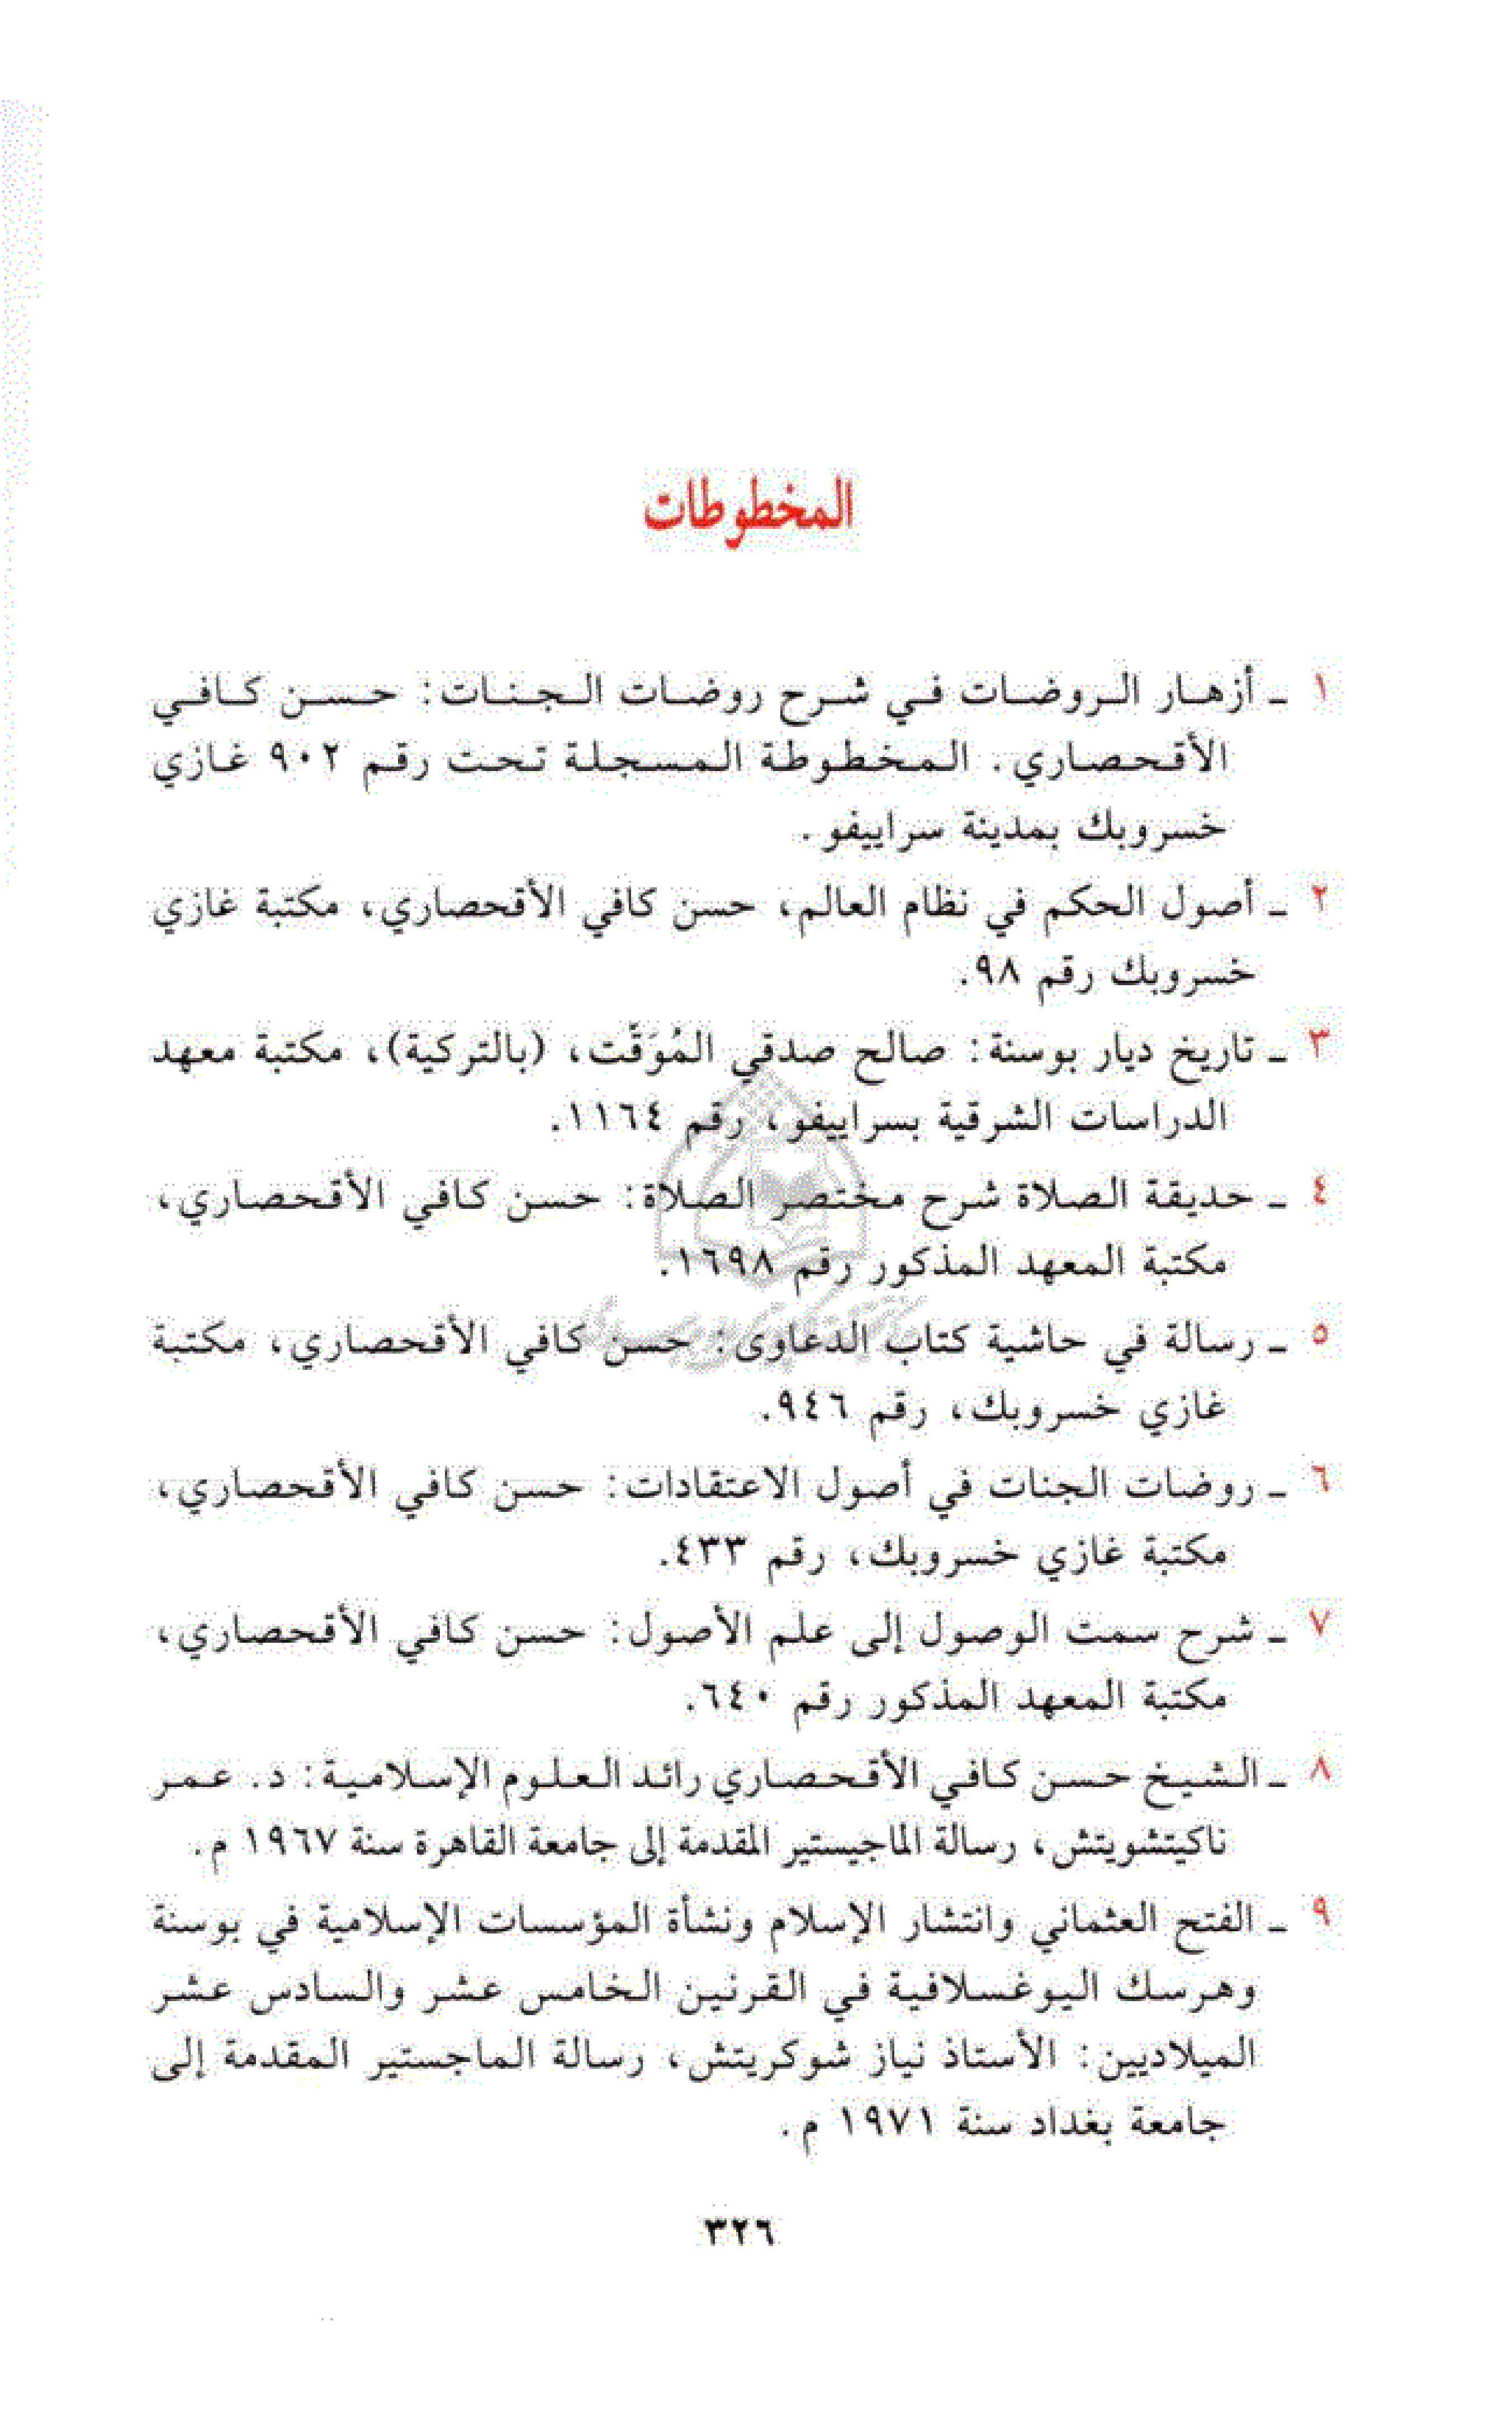 المخطوطات
١ ـ أزهار الروضات في شرح روضات الجنات: حسن كافي
الأقحصاري. المخطوطة المسجلة تحت رقم ٩٠٢ غازي
خسروبك بمدينة سراييفو.
٢ ـ أصول الحكم في نظام العالم، حسن كافي الأقحصاري، مكتبة غازي
خسروبك رقم ٩٨.
٣ ـ تاريخ ديار بوسنة: صالح صدقي المُوَقّت، (بالتركية)، مكتبة معهد
الدراسات الشرقية بسراييفو، رقم ١١٦٤.
٤ ـ حديقة الصلاة شرح مختصر الصلاة: حسن كافي الأقحصاري،
مكتبة المعهد المذكور رقم ١٦٩٨.
٥ ـ رسالة في حاشية كتاب الدعاوى: حسن كافي الأقحصاري، مكتبة
غازي خسروبك، رقم ٩٤٦.
٦ ـ روضات الجنات في أصول الاعتقادات: حسن كافي الأقحصاري،
مكتبة غازي خسروبك، رقم ٤٣٣.
٧ ـ شرح سمت الوصول إلى علم الأصول: حسن كافي الأقحصاري،
مكتبة المعهد المذكور رقم ٦٤٠.
٨ ـ الشيخ حسن كافي الأقحصاري رائد العلوم الإسلامية: د. عمر
ناكيتشويتش، رسالة الماجيستير المقدمة إلى جامعة القاهرة سنة ١٩٦٧ م.
٩ ـ الفتح العثماني وانتشار الإسلام ونشأة المؤسسات الإسلامية في بوسنة
وهرسك اليوغسلافية في القرنين الخامس عشر والسادس عشر
الميلاديين: الأستاذ نياز شوكريتش، رسالة الماجستير المقدمة إلى
جامعة بغداد سنة ١٩٧١ م.
٣٢٦